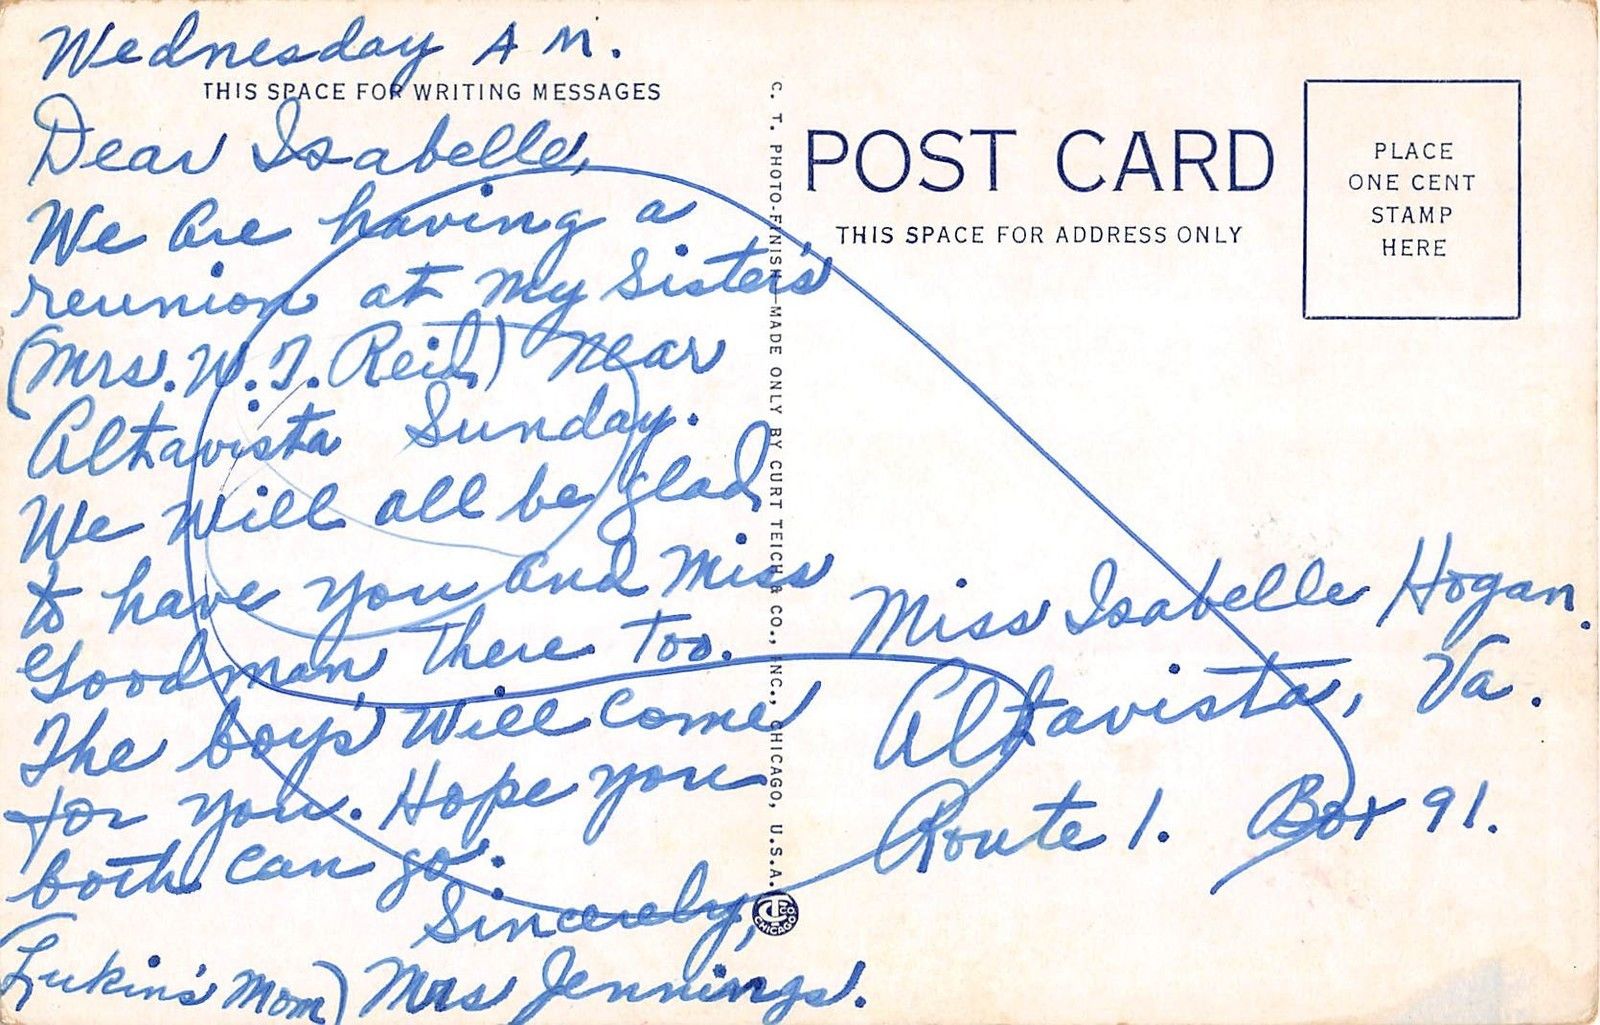 Wednesday A M.
THIS SPACE FOR WRITING MESSAGES
Dear Isabelle,
We are having a
reunion at my Sister's
(Mrs. W. T. Reid) near
Altavista Sunday.
We will all be glad
to have you and Miss
Goodman there too.
The boys will come
for you. Hope you
both can go.
Sincerely,
(Lukin's Mom) Mrs Jennings.
C. T. PHOTO-FINISH—MADE ONLY BY CURT TEICH & CO., INC., CHICAGO, U.S.A.
CHICAGO
POST CARD
THIS SPACE FOR ADDRESS ONLY
PLACE
ONE CENT
STAMP
HERE
Miss Isabelle Hogan.
Altavista, Va.
Route 1. Box 91.